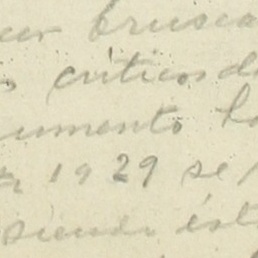 brusca
críticos d
umento
1929 se
siendo ést